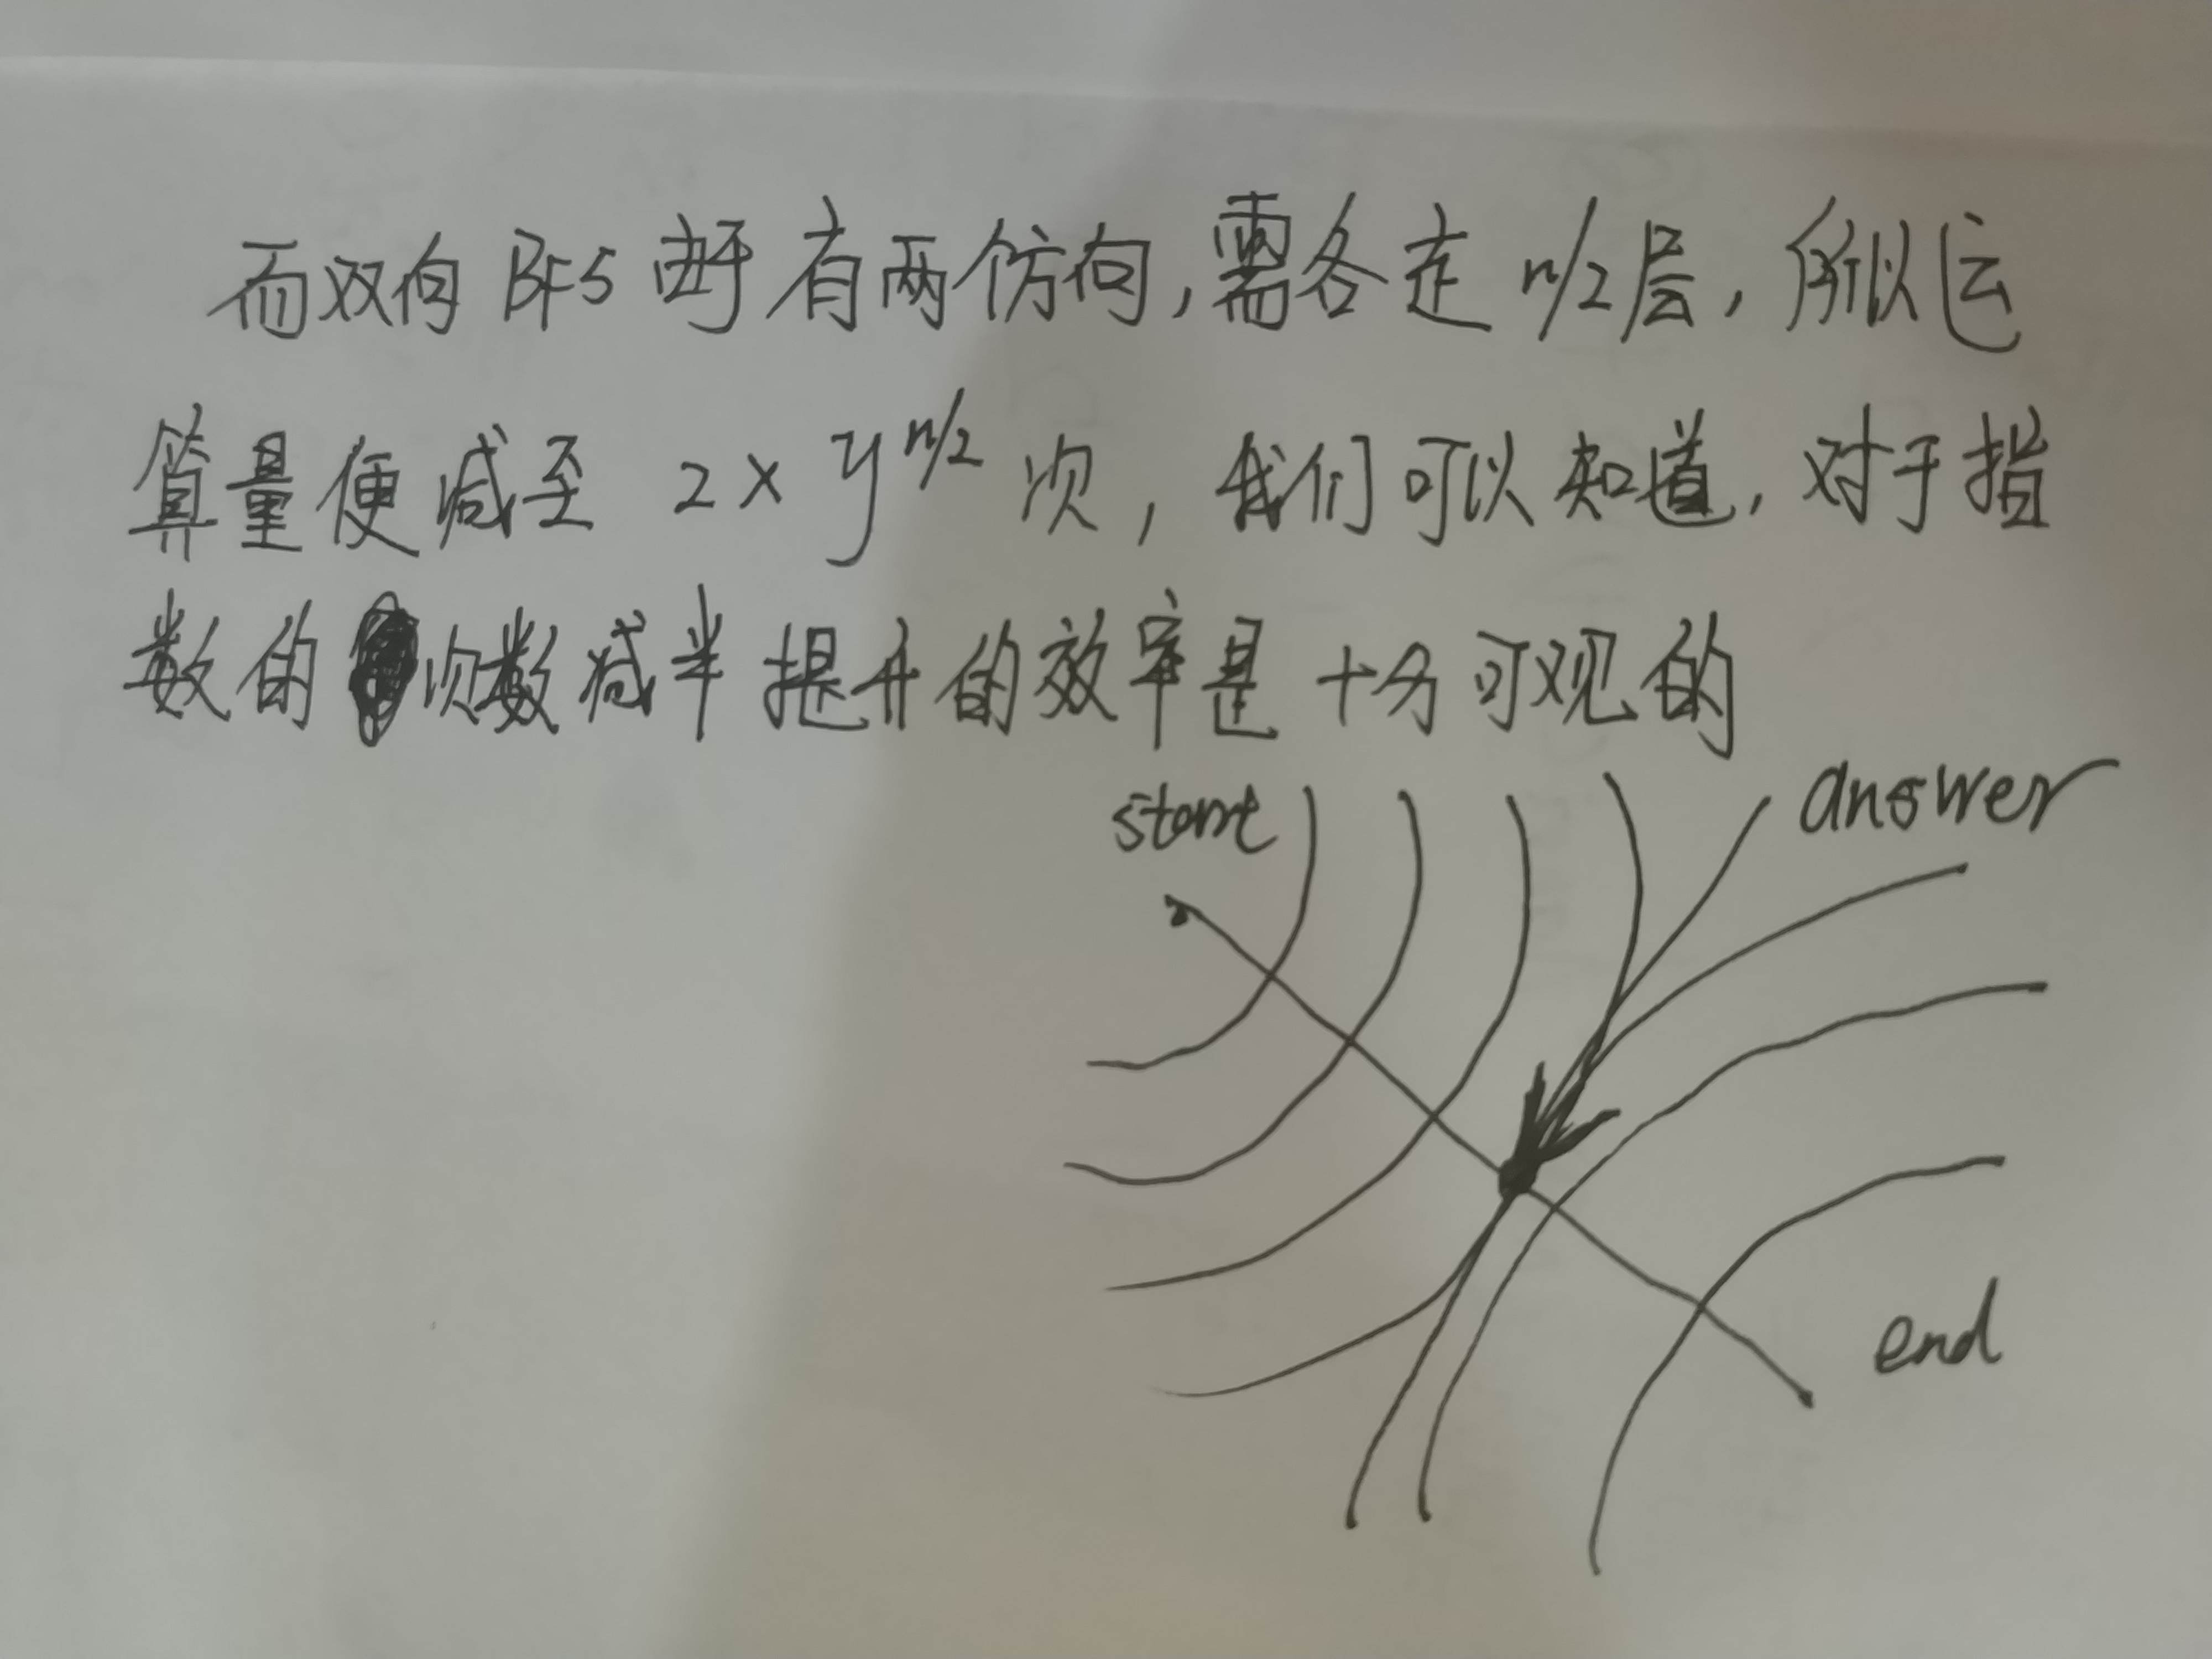 而双向BFS带有两个方向，需各走n/2层，所以运
算量便减至 2×y^n/2 次，我们可以知道，对于指
数的次数减半提升的效率是十分可观的
start
answer
end